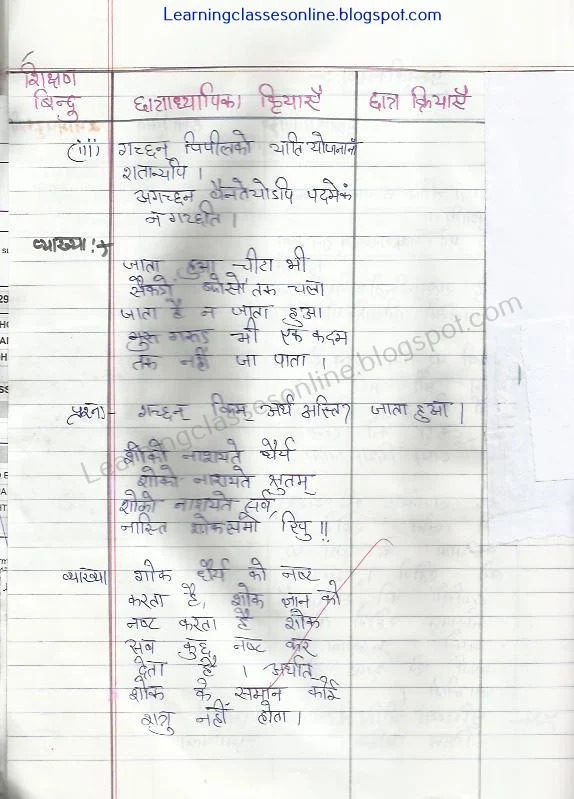 Learningclassesonline.blogspot.com
शिक्षण बिन्दू | छात्राध्यापिका क्रियाएँ | छात्र क्रियाएँ
(iii) गच्छन् पिपीलको याति योजनानां
शतान्यपि ।
अगच्छन वैनतेयोऽपि पदमेकं
न गच्छति ।
व्याख्या :→
जाता हुआ चीटा भी
सैकडो कोसो तक चला
जाता है न जाता हुआ
गरूड भी एक कदम
तक नहीं जा पाता ।
प्रश्न:- गच्छन् किम् अर्थ अस्ति? जाता हुआ ।
शोको नाशयते धैर्य
शोको नाशयते श्रुतम्
शोको नाशयते सर्व,
नास्ति शोकसमो रिपु !!
व्याख्या शोक धैर्य को नष्ट
करता है, शोक ज्ञान को
नष्ट करता है शोक
सब कुछ नष्ट कर
देता है । अर्थात
शोक के समान कोई
शत्रु नहीं होता ।
Learningclassesonline.blogspot.com